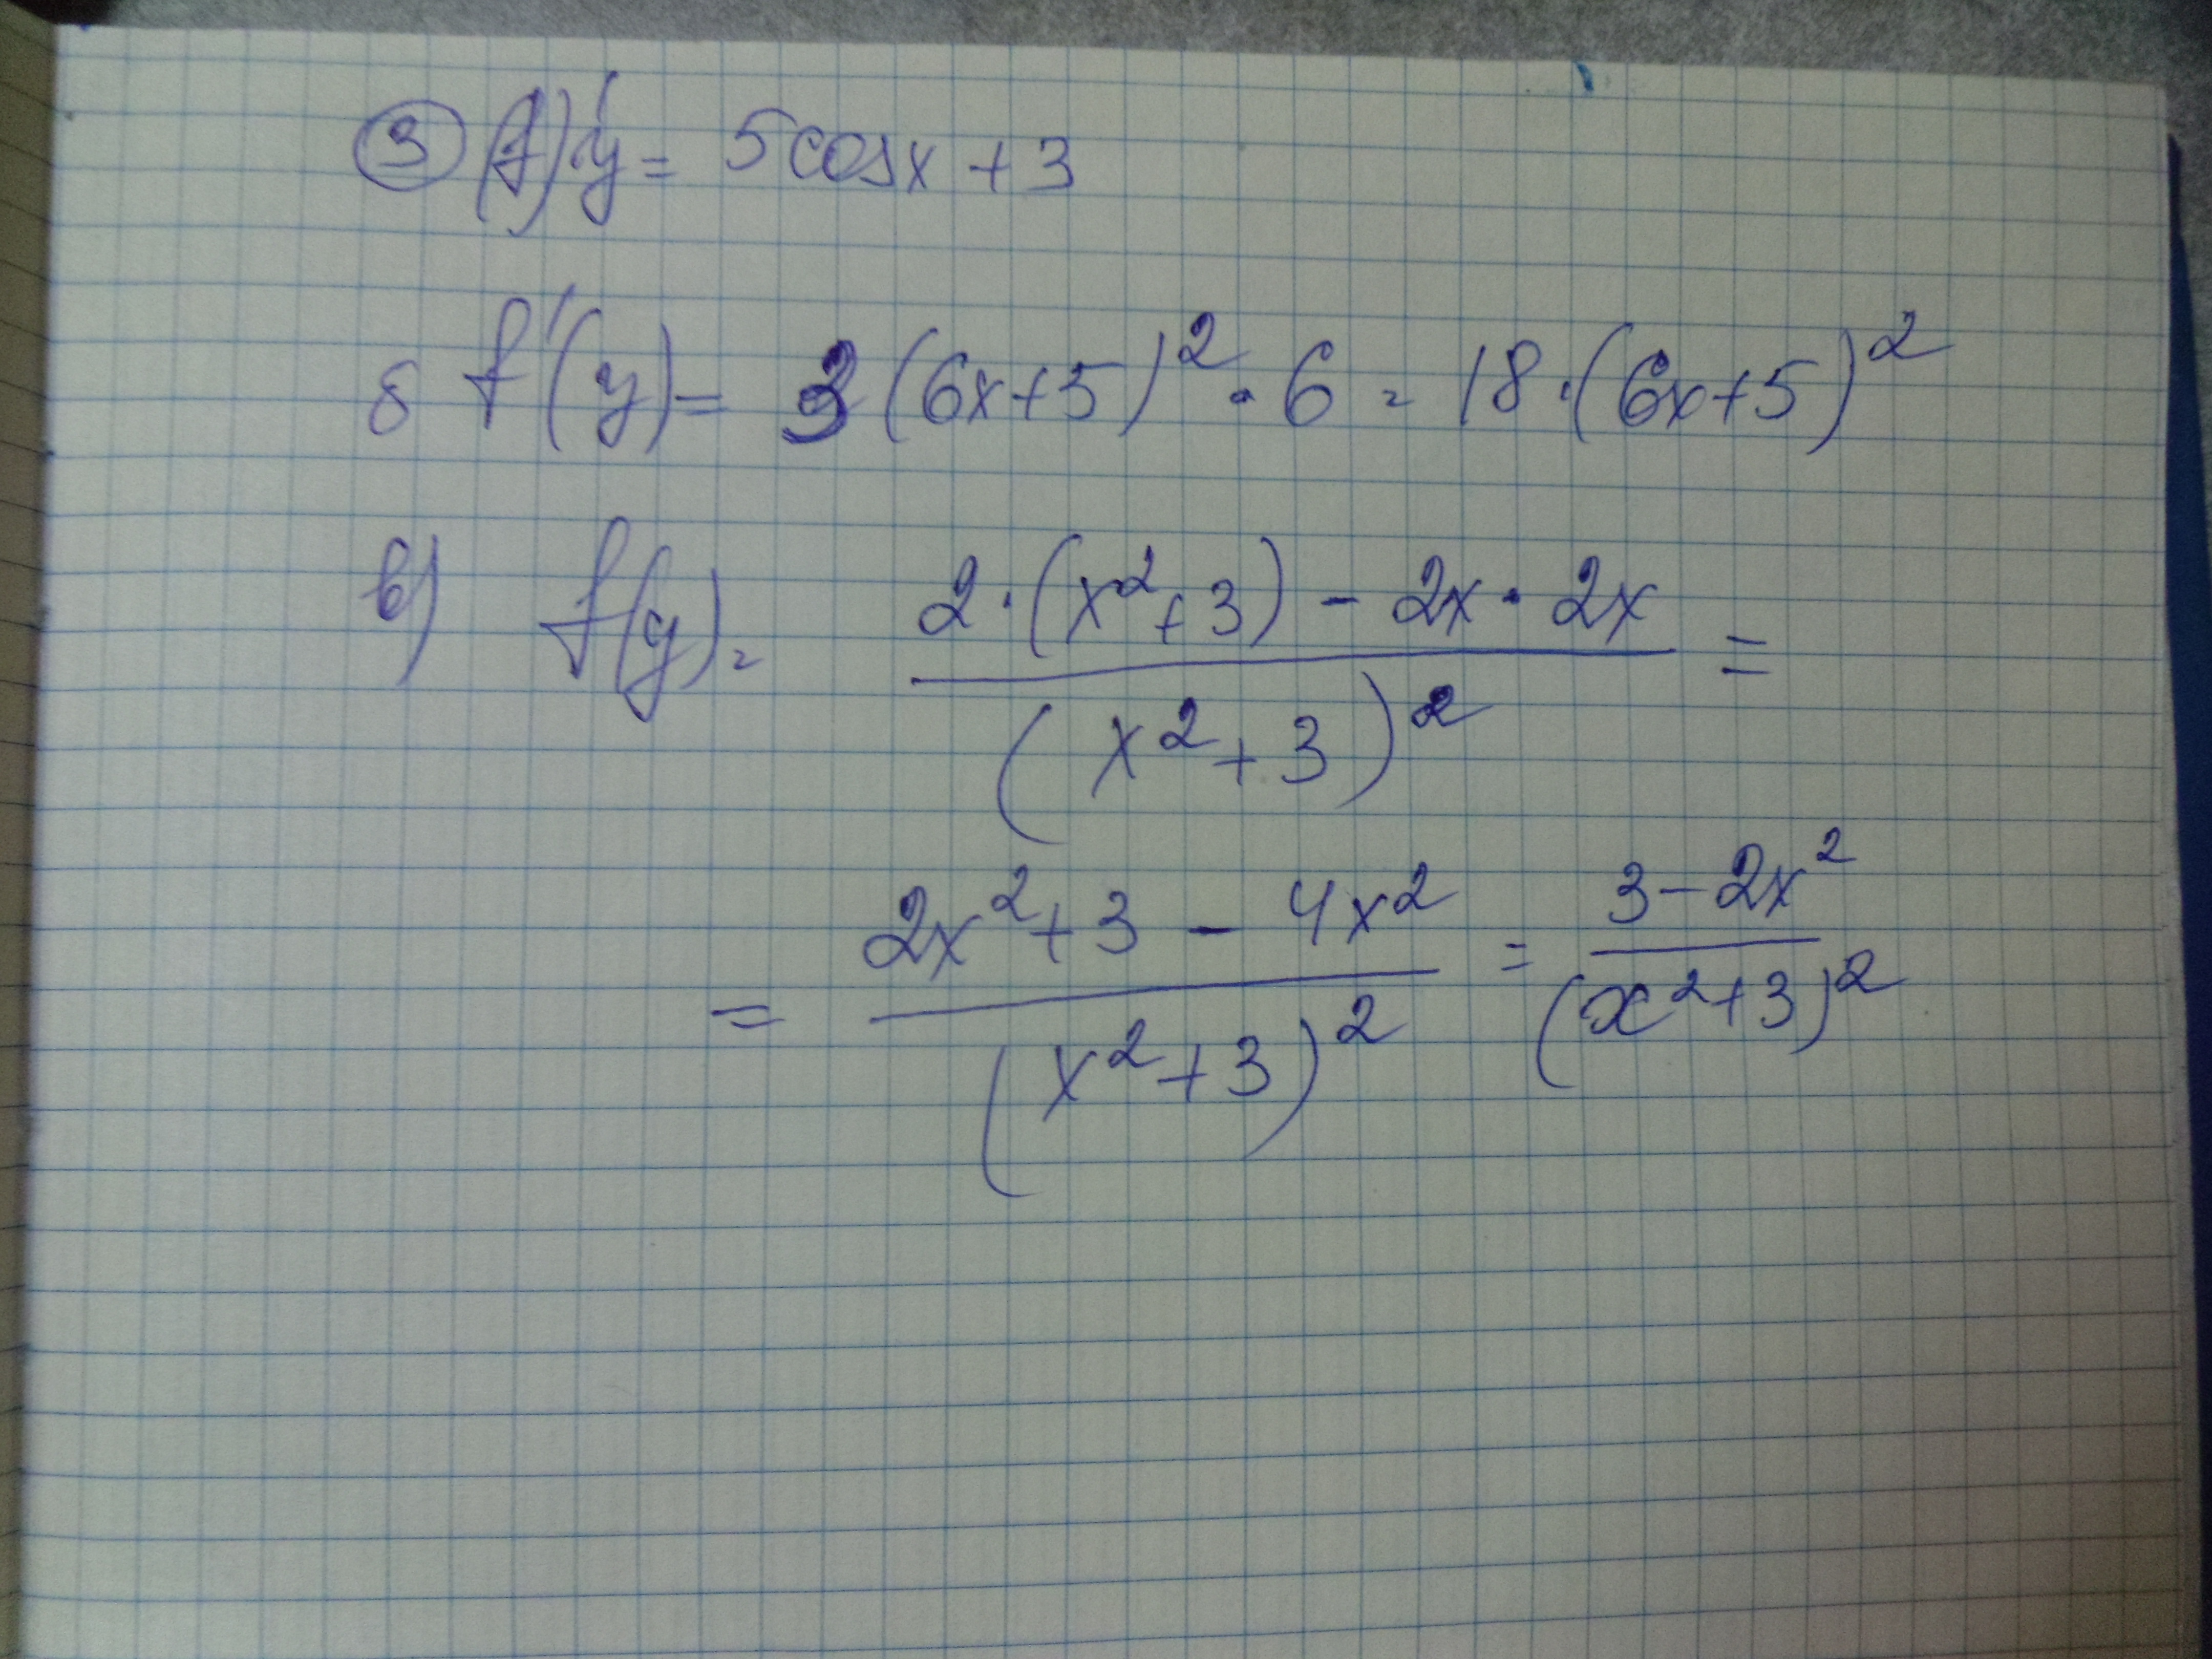 ③ y' = 5cosx + 3
б f'(y) = 3(6x+5)² · 6 = 18·(6x+5)²
в) f(y) = (2·(x²+3) - 2x·2x)/(x²+3)² =
= (2x²+3 - 4x²)/(x²+3)² = (3-2x²)/(x²+3)²